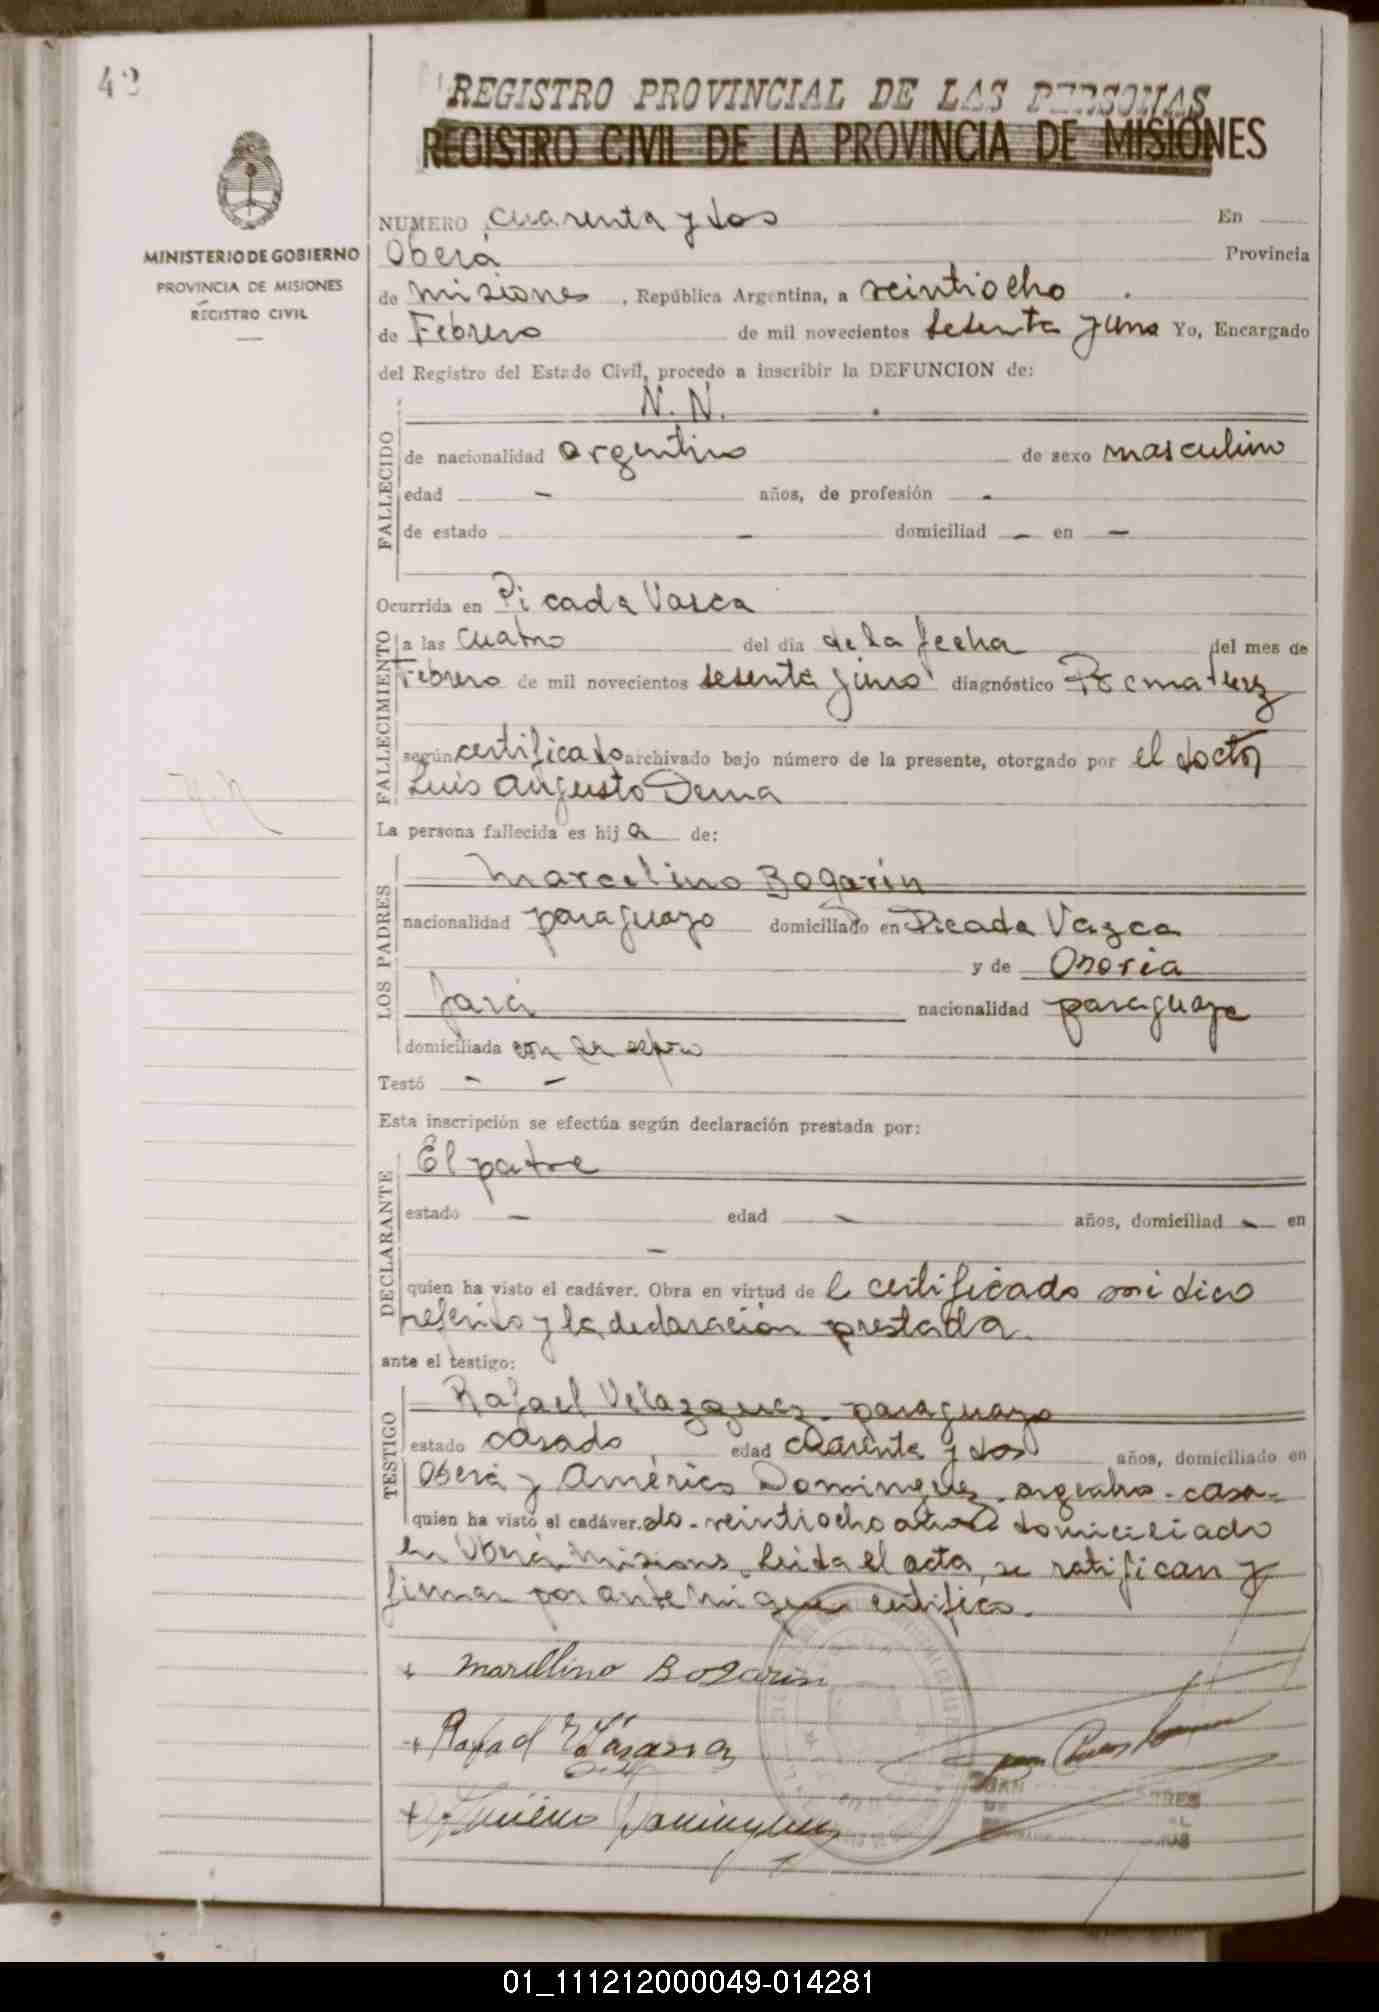 42
REGISTRO PROVINCIAL DE LAS PERSONAS
REGISTRO CIVIL DE LA PROVINCIA DE MISIONES
MINISTERIO DE GOBIERNO
PROVINCIA DE MISIONES
REGISTRO CIVIL
NUMERO cuarenta y dos En
Oberá Provincia
de Misiones, República Argentina, a veintiocho
de Febrero de mil novecientos setenta y uno Yo, Encargado
del Registro del Estado Civil, procedo a inscribir la DEFUNCION de:
N. N.
FALLECIDO
de nacionalidad argentino de sexo masculino
edad - años, de profesión -
de estado - domiciliad - en -
Ocurrida en Picada Vasca
FALLECIMIENTO
a las cuatro del día de la fecha del mes de
Febrero de mil novecientos setenta y uno diagnóstico
según certificado archivado bajo número de la presente, otorgado por el doctor
Luis Augusto Derna
N.N
La persona fallecida es hija de:
LOS PADRES
Marcelino Bogarin
nacionalidad paraguayo domiciliado en Picada Vazca
y de Onoria
Jara nacionalidad paraguaya
domiciliada con
Testó - -
Esta inscripción se efectúa según declaración prestada por:
DECLARANTE
El padre
estado - edad - años, domiciliad - en
-
quien ha visto el cadáver. Obra en virtud de l certificado médico
referido y la declaración prestada.
ante el testigo:
TESTIGO
Rafael Velazquez - paraguayo
estado casado edad cuarenta y dos años, domiciliado en
Oberá y Américo Dominguez - argentino - casa-
quien ha visto el cadáver. do - veintiocho años domiciliado
en Oberá Misiones. Leida el acta, se ratifican y
firman por ante mi que certifico.
+ Marcelino Bogarin
+ Rafael
+ Dominguez
JUAN
01_111212000049-014281